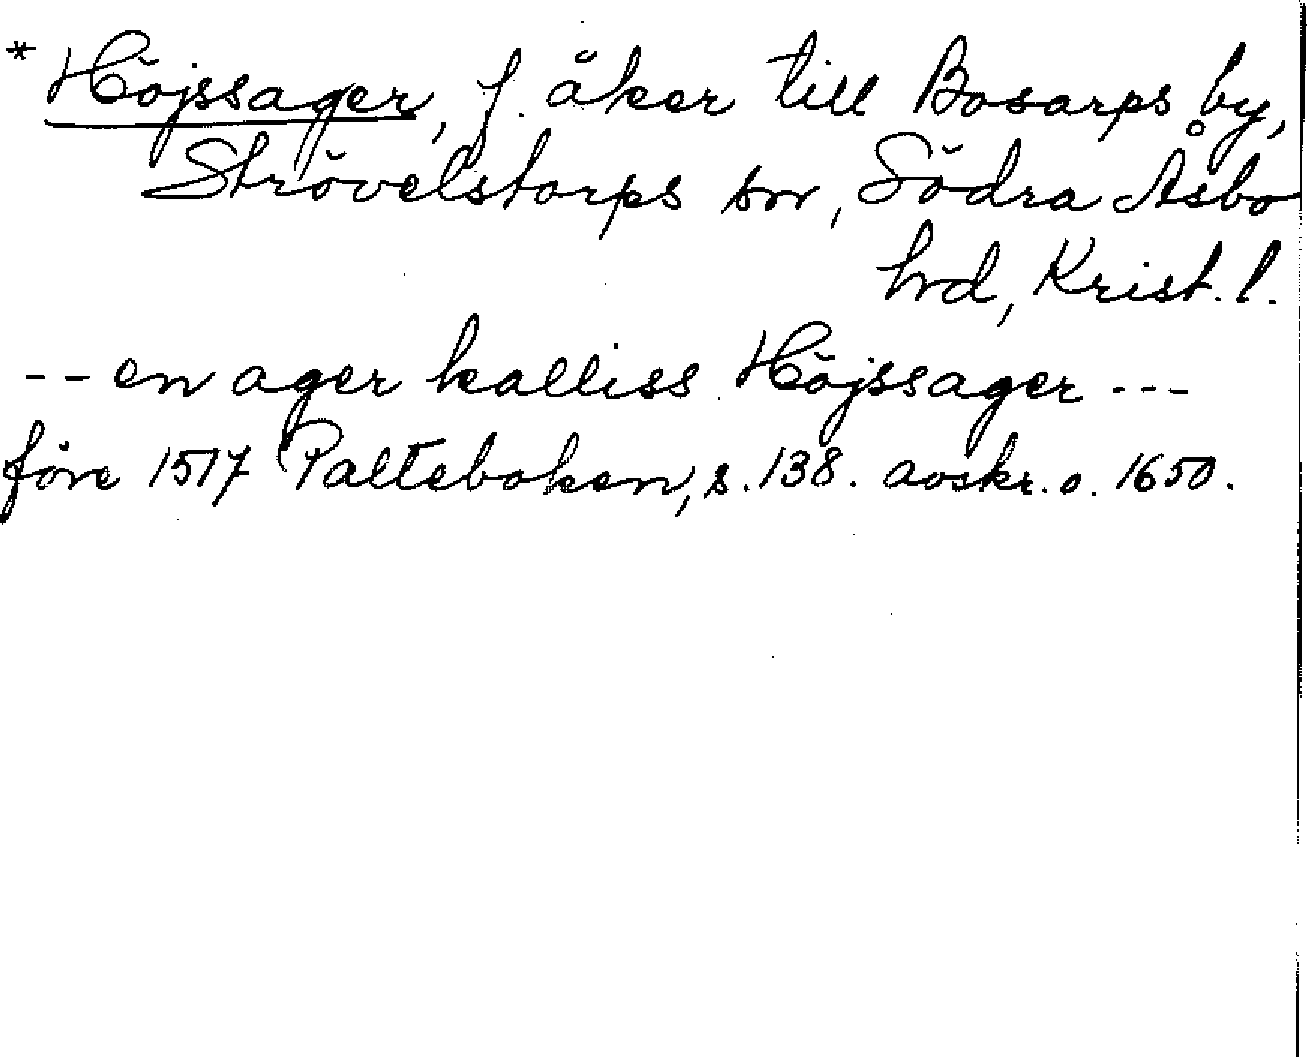 * Höjssager, f. åker till Bosarps by,
Strövelstorps sn, Södra Åsbo
hrd, Krist. l.
-- en ager kalliss Höjssager ---
före 1517 Palteboken, s. 138. avskr. o. 1650.